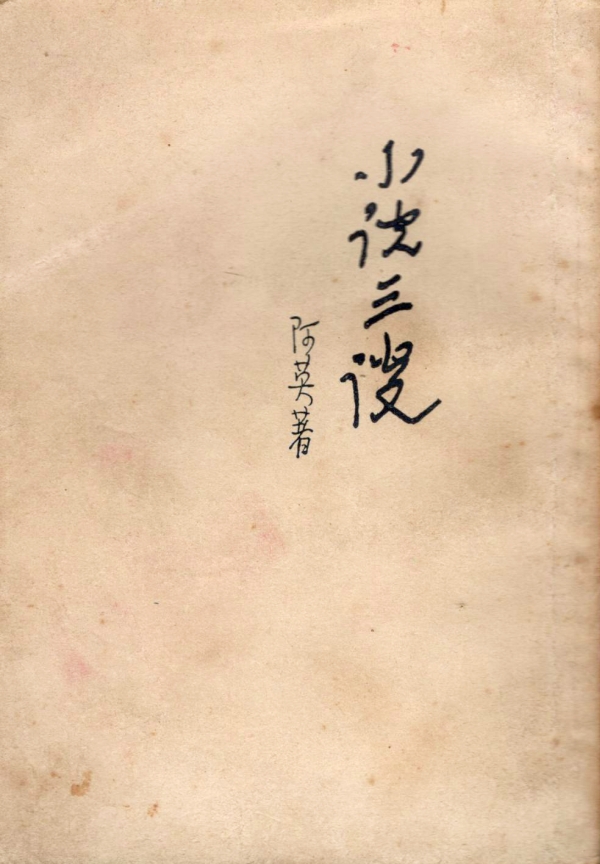 小说三谈
阿英著